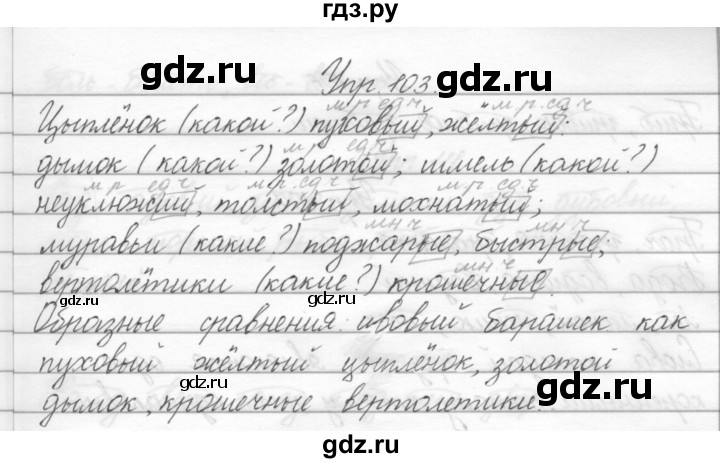 гдз.ру
Упр. 103.
м р ед ч м. р. ед ч
Цыплёнок (какой?) пуховый, жёлтый:
м р ед ч
дымок (какой?) золотой; шмель (какой?)
м р ед ч м.р. ед ч м р ед ч
неуклюжий, толстый, мохнатый;
мн ч мн ч
муравьи (какие?) поджарые, быстрые;
мн ч
вертолётики (какие?) крошечные.
Образные сравнения: ивовый барашек как
пуховый жёлтый цыплёнок, золотой
дымок, крошечные вертолетики
gdz.ru
gdz.ru
gdz.ru
gdz.ru
gdz.ru
gdz.ru
gdz.ru
gdz.ru